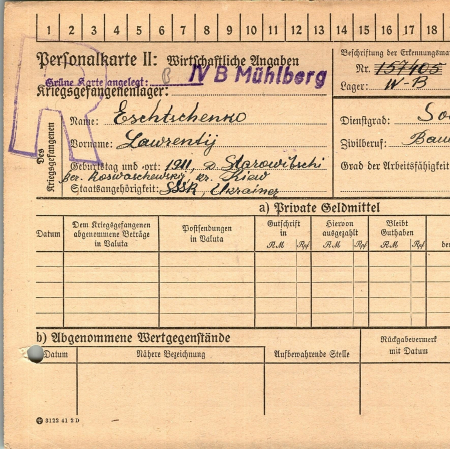 1 2 3 4 5 6 7 8 9 10 11 12 13 14 15 16 17 18
Personalkarte II: Wirtschaftliche Angaben
Beschriftung der Erkennungsma
Grüne Karte angelegt: IV B Mühlberg
Nr. 157105
Kriegsgefangenenlager:
Lager: IV-B
Des Kriegsgefangenen
Name: Eschtschenko
Dienstgrad: So
Vorname: Lawrentij
Zivilberuf: Bau
Geburtstag und -ort: 1911, D. Starowitschi
Grad der Arbeitsfähigkeit
ber. Roswaschewsky, kr. Kiew
Staatsangehörigkeit: SSSR, Ukrainer
a) Private Geldmittel
Datum
Dem Kriegsgefangenen abgenommene Beträge in Valuta
Postsendungen in Valuta
Gutschrift in
RM Rpf
Hiervon ausgezahlt
RM Rpf
Bleibt Guthaben
RM Rpf
be
b) Abgenommene Wertgegenstände
Datum
Nähere Bezeichnung
Aufbewahrende Stelle
Rückgabevermerk mit Datum
3122 41 2 D